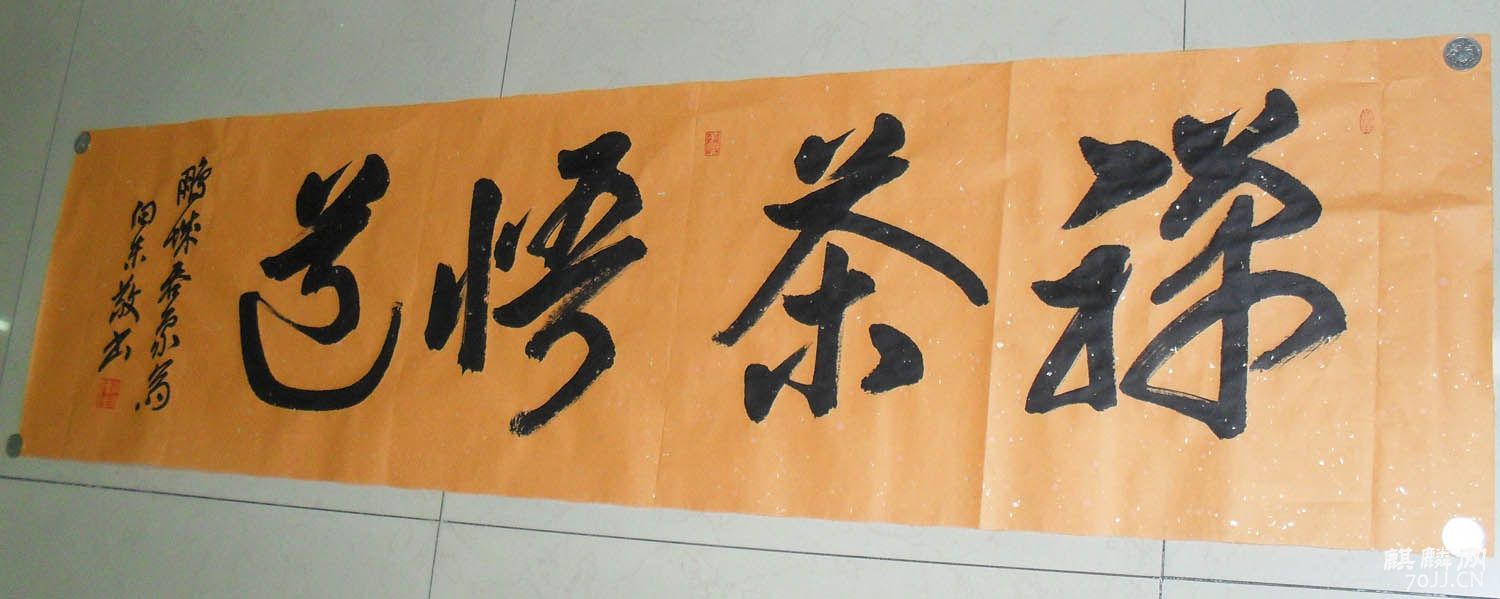 禅茶悟道
鹏城
向东敬书
麒麟网
70JJ.CN